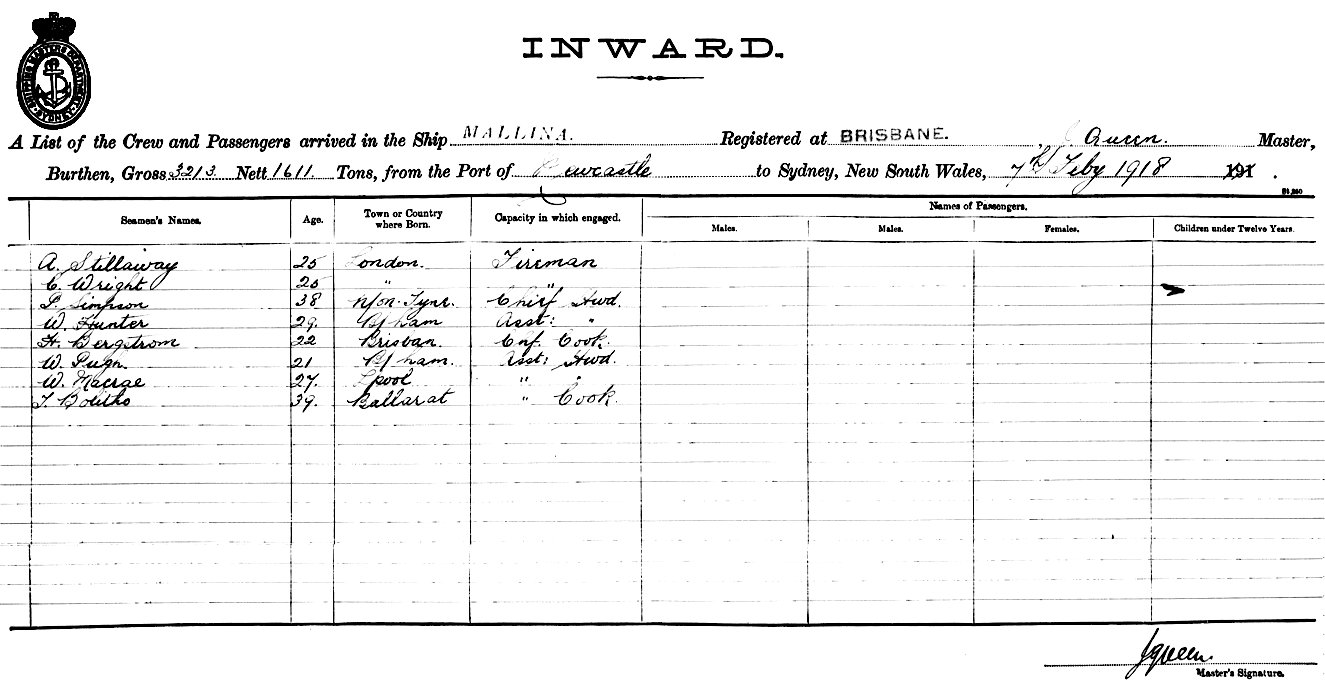 SHIPPING MASTERS DEPARTMENT SYDNEY
INWARD.
A List of the Crew and Passengers arrived in the Ship MALLINA. Registered at BRISBANE. J Queen. Master,
Burthen, Gross 3213 Nett 1611 Tons, from the Port of Newcastle to Sydney, New South Wales, 7th Feby 1918 191 .
Seamen's Names. Age. Town or Country where Born. Capacity in which engaged. Names of Passengers.
Males. Males. Females. Children under Twelve Years.
A. Stillaway 25 London. Fireman
C. Wright 25 " "
P. Simpson 38 N/on-Tyne. Chief Stwd.
W. Hunter 29. B/ham Asst: "
H. Bergstrom 22 Brisban. Chf. Cook.
W. Pugh. 21 B/ham. Asst: Stwd.
W. Macrae 27. Lpool " "
T. Bolitho 39. Ballarat " Cook.
JQueen.
Master's Signature.